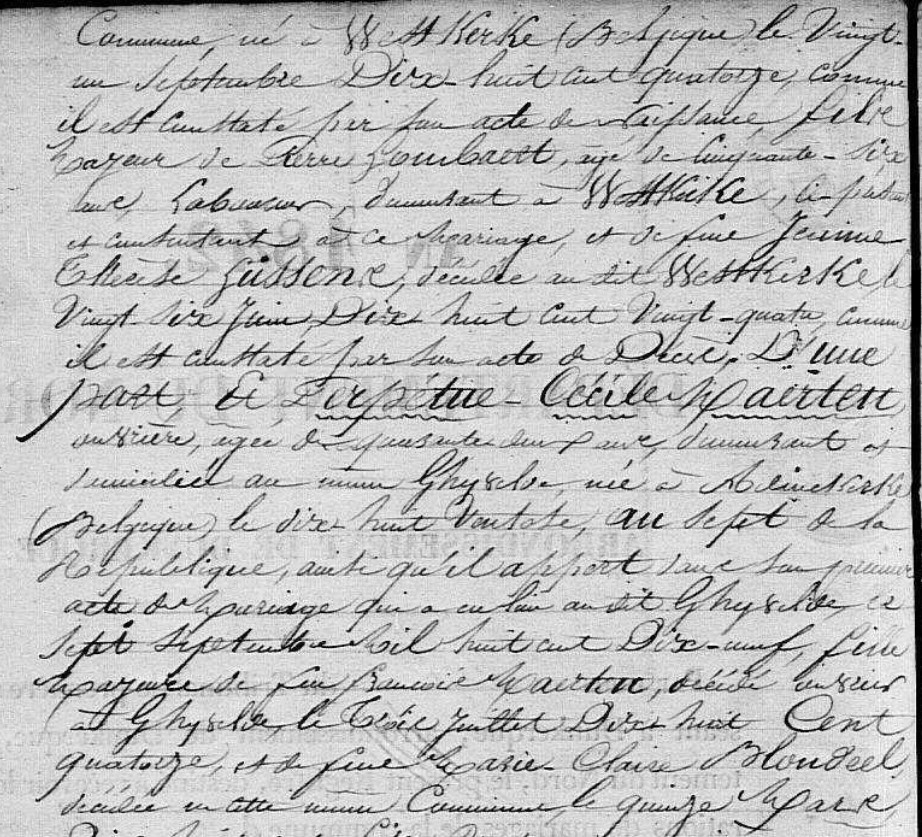 Commune, né à WestKerke (Belgique) le Vingt-
un septembre Dix-huit cent quatorze, comme
il est constaté par son acte de naissance, fils
Mayeur de Pierre Zombaert, agé de Cinquante-Six
ans, Laboureur, demeurant à WestKerke, ci-présent
et consentant à ce mariage, et de feue Jeanne
Thérèse Gussenr, décédée au dit WestKerke le
Vingt-Six Juin Dix-huit cent Vingt-quatre, comme
il est constaté par son acte de Décès, D'une
part & Perpétue-Cécile Maerten
ouvrière, agée de quarante-deux ans, demeurant et
domiciliée au même Ghyvelde, née à Adinckerke
(Belgique) le dix-huit Ventose, au sept de la
République, ainsi qu'il appert dans son premier
acte de Mariage qui a eu lieu au dit Ghyvelde, le
sept septembre Mil huit cent Dix-neuf, fille
Mayeure de feu Francois Maerten, décédé ouvrier
à Ghyvelde, le Trois Juillet Dix-huit Cent
quatorze, et de feue Marie-Claire Blondeel
décédée en cette même Commune le quinze Mars